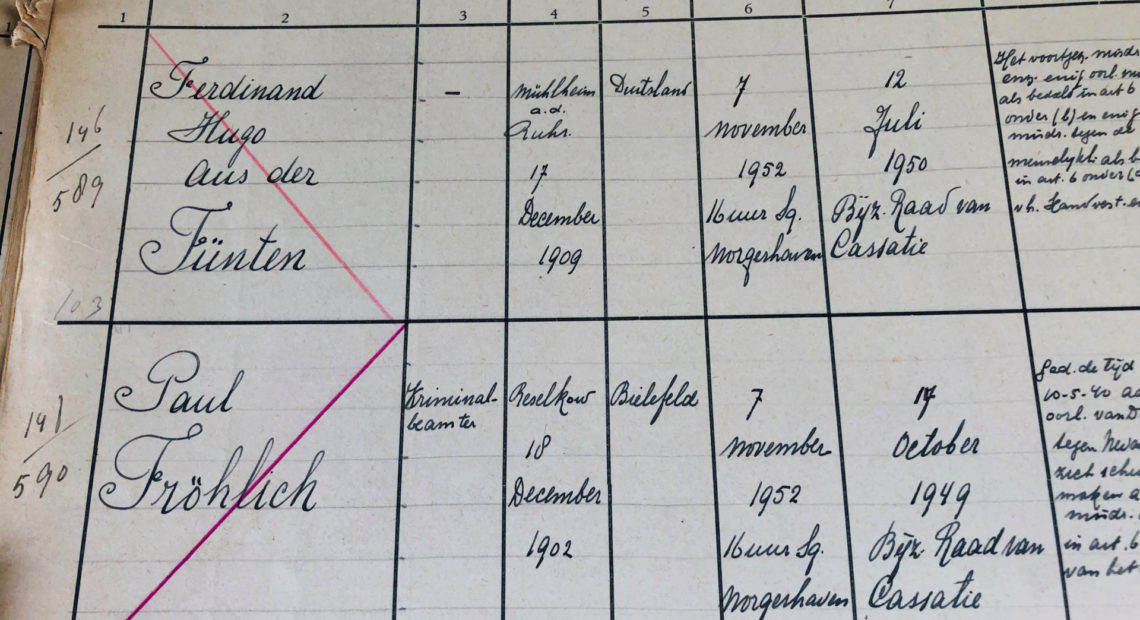 1 2 3 4 5 6 7
146
589
Ferdinand
Hugo
aus der
Fünten
-
Mühlheim
a.d.
Ruhr.
17
December
1909
Deutsland
7
november
1952
16 uur Sg.
Norgerhaven
12
Juli
1950
Bijz. Raad van
Cassatie
Het voortgez. misdr
enz. enig oorl. m
als bedoeld in art 6
onder (b) en enig
misdr. tegen de
menselijkh. als b
in art. 6 onder (c
v.h. Handvest. e
103
590
Paul
Fröhlich
Kriminal-
beamter
Reselkow
18
December
1902
Bielefeld
7
november
1952
16 uur Sg.
Norgerhaven
17
October
1949
Bijz. Raad van
Cassatie
Ged. de tijd
10-5-40 a
oorl. van D
tegen Ned
zich sch
maken a
misdr.
in art. 6
van het